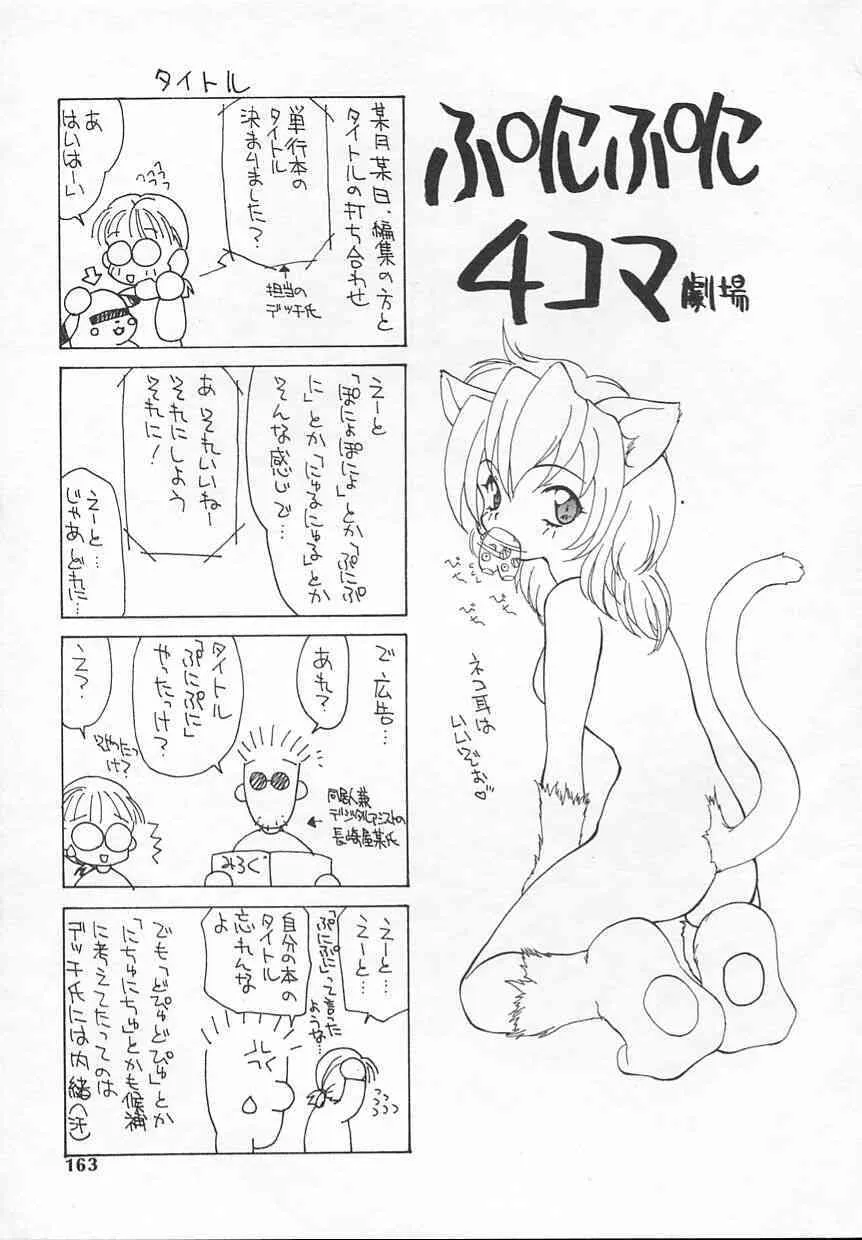 ぷにぷに
4コマ劇場
ネコ耳は
いいぞお♡
ぴち
ぴち
ぴち
タイトル
某月某日、編集の方と
タイトルの打ち合わせ
単行本の
タイトル
決まりました？
担当の
デッチ氏
あ
はいはーい
えーと
「ぽにょぽにょ」とか、「ぷにぷ
に」とか「にゅるにゅる」とか
そんな感じで…
あ それいいねー
それにしよう
それに！
えーと…
じゃあどれに…
で 広告…
あれ？
タイトル
「ぷにぷに」
やったっけ？
同居人兼
デジタルアシストの
長崎屋某氏
みろく
え？
そやったっ
け？
えーと…
えーと…
「ぷにぷに」って言った
ような…
自分の本の
タイトル
忘れんな
よ
でも「どぴゅどぴゅ」とか
「にちゅにちゅ」とかも候補
に考えてたってのは
デッチ氏には内緒（汗）
163